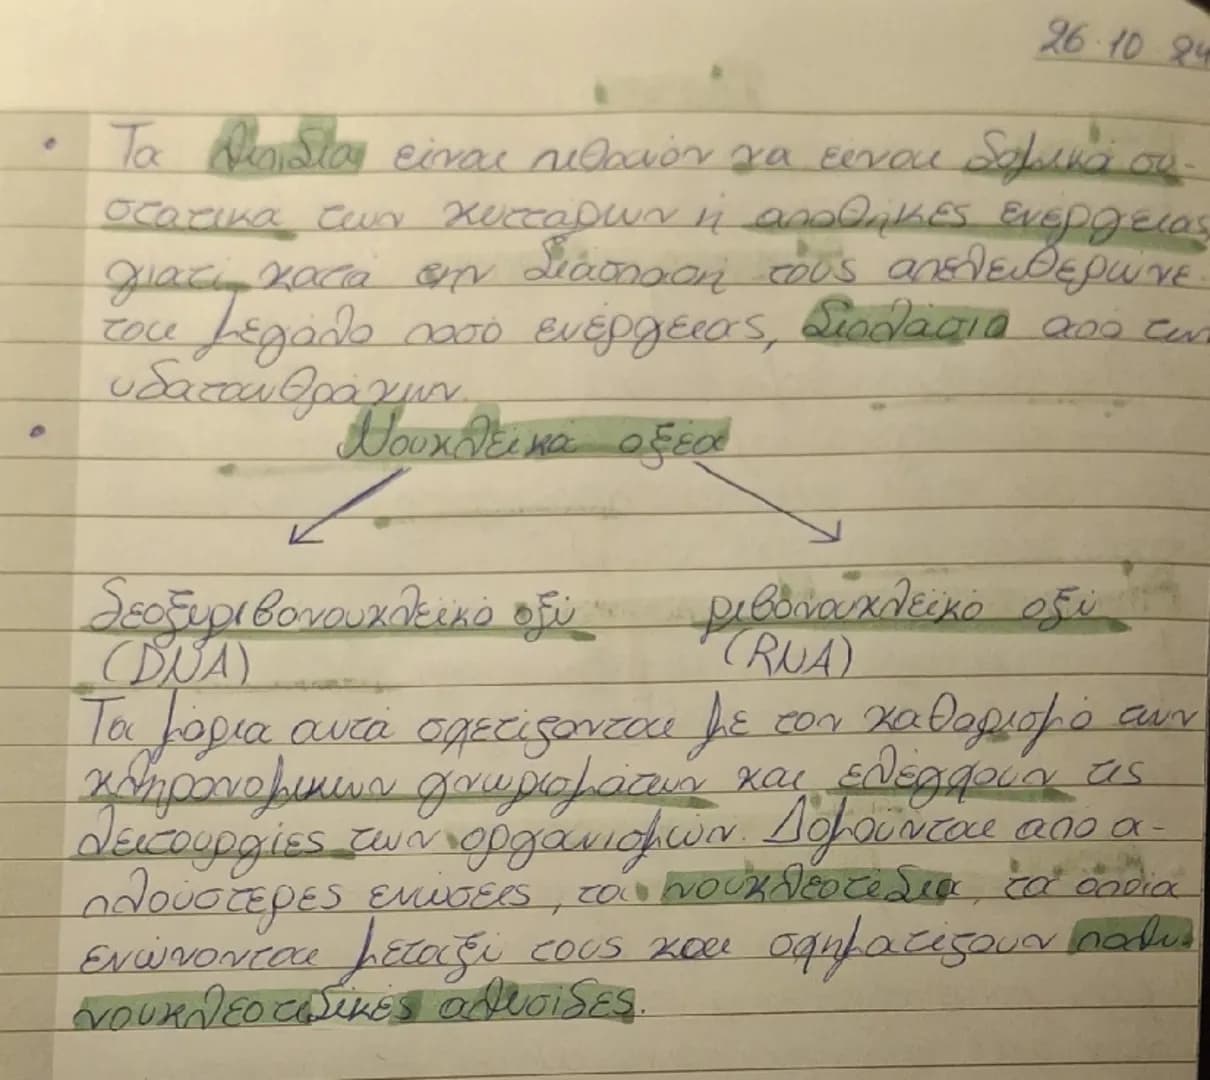 26.10.24
• Τα λιπίδια είναι πιθανόν να είναι δομικά συ-
στατικά των κυττάρων ή αποθήκες ενέργειας,
γιατί κατά την διάσπασή τους απελευθερώνε-
ται μεγάλο ποσό ενέργειας, διπλάσια από των
υδατανθράκων.
• Νουκλεϊκά οξέα
δεοξυριβονουκλεϊκό οξύ ριβονουκλεϊκό οξύ
(DNA) (RNA)
Τα μόρια αυτά σχετίζονται με τον καθαρισμό των
κληρονομικών γνωρισμάτων και ελέγχουν τις
λειτουργίες των οργανισμών. Δομούνται από α-
πλούστερες ενώσεις, τα νουκλεοτίδια, τα οποία
ενώνονται μεταξύ τους και σχηματίζουν πολυ-
νουκλεοτιδικές αλυσίδες.